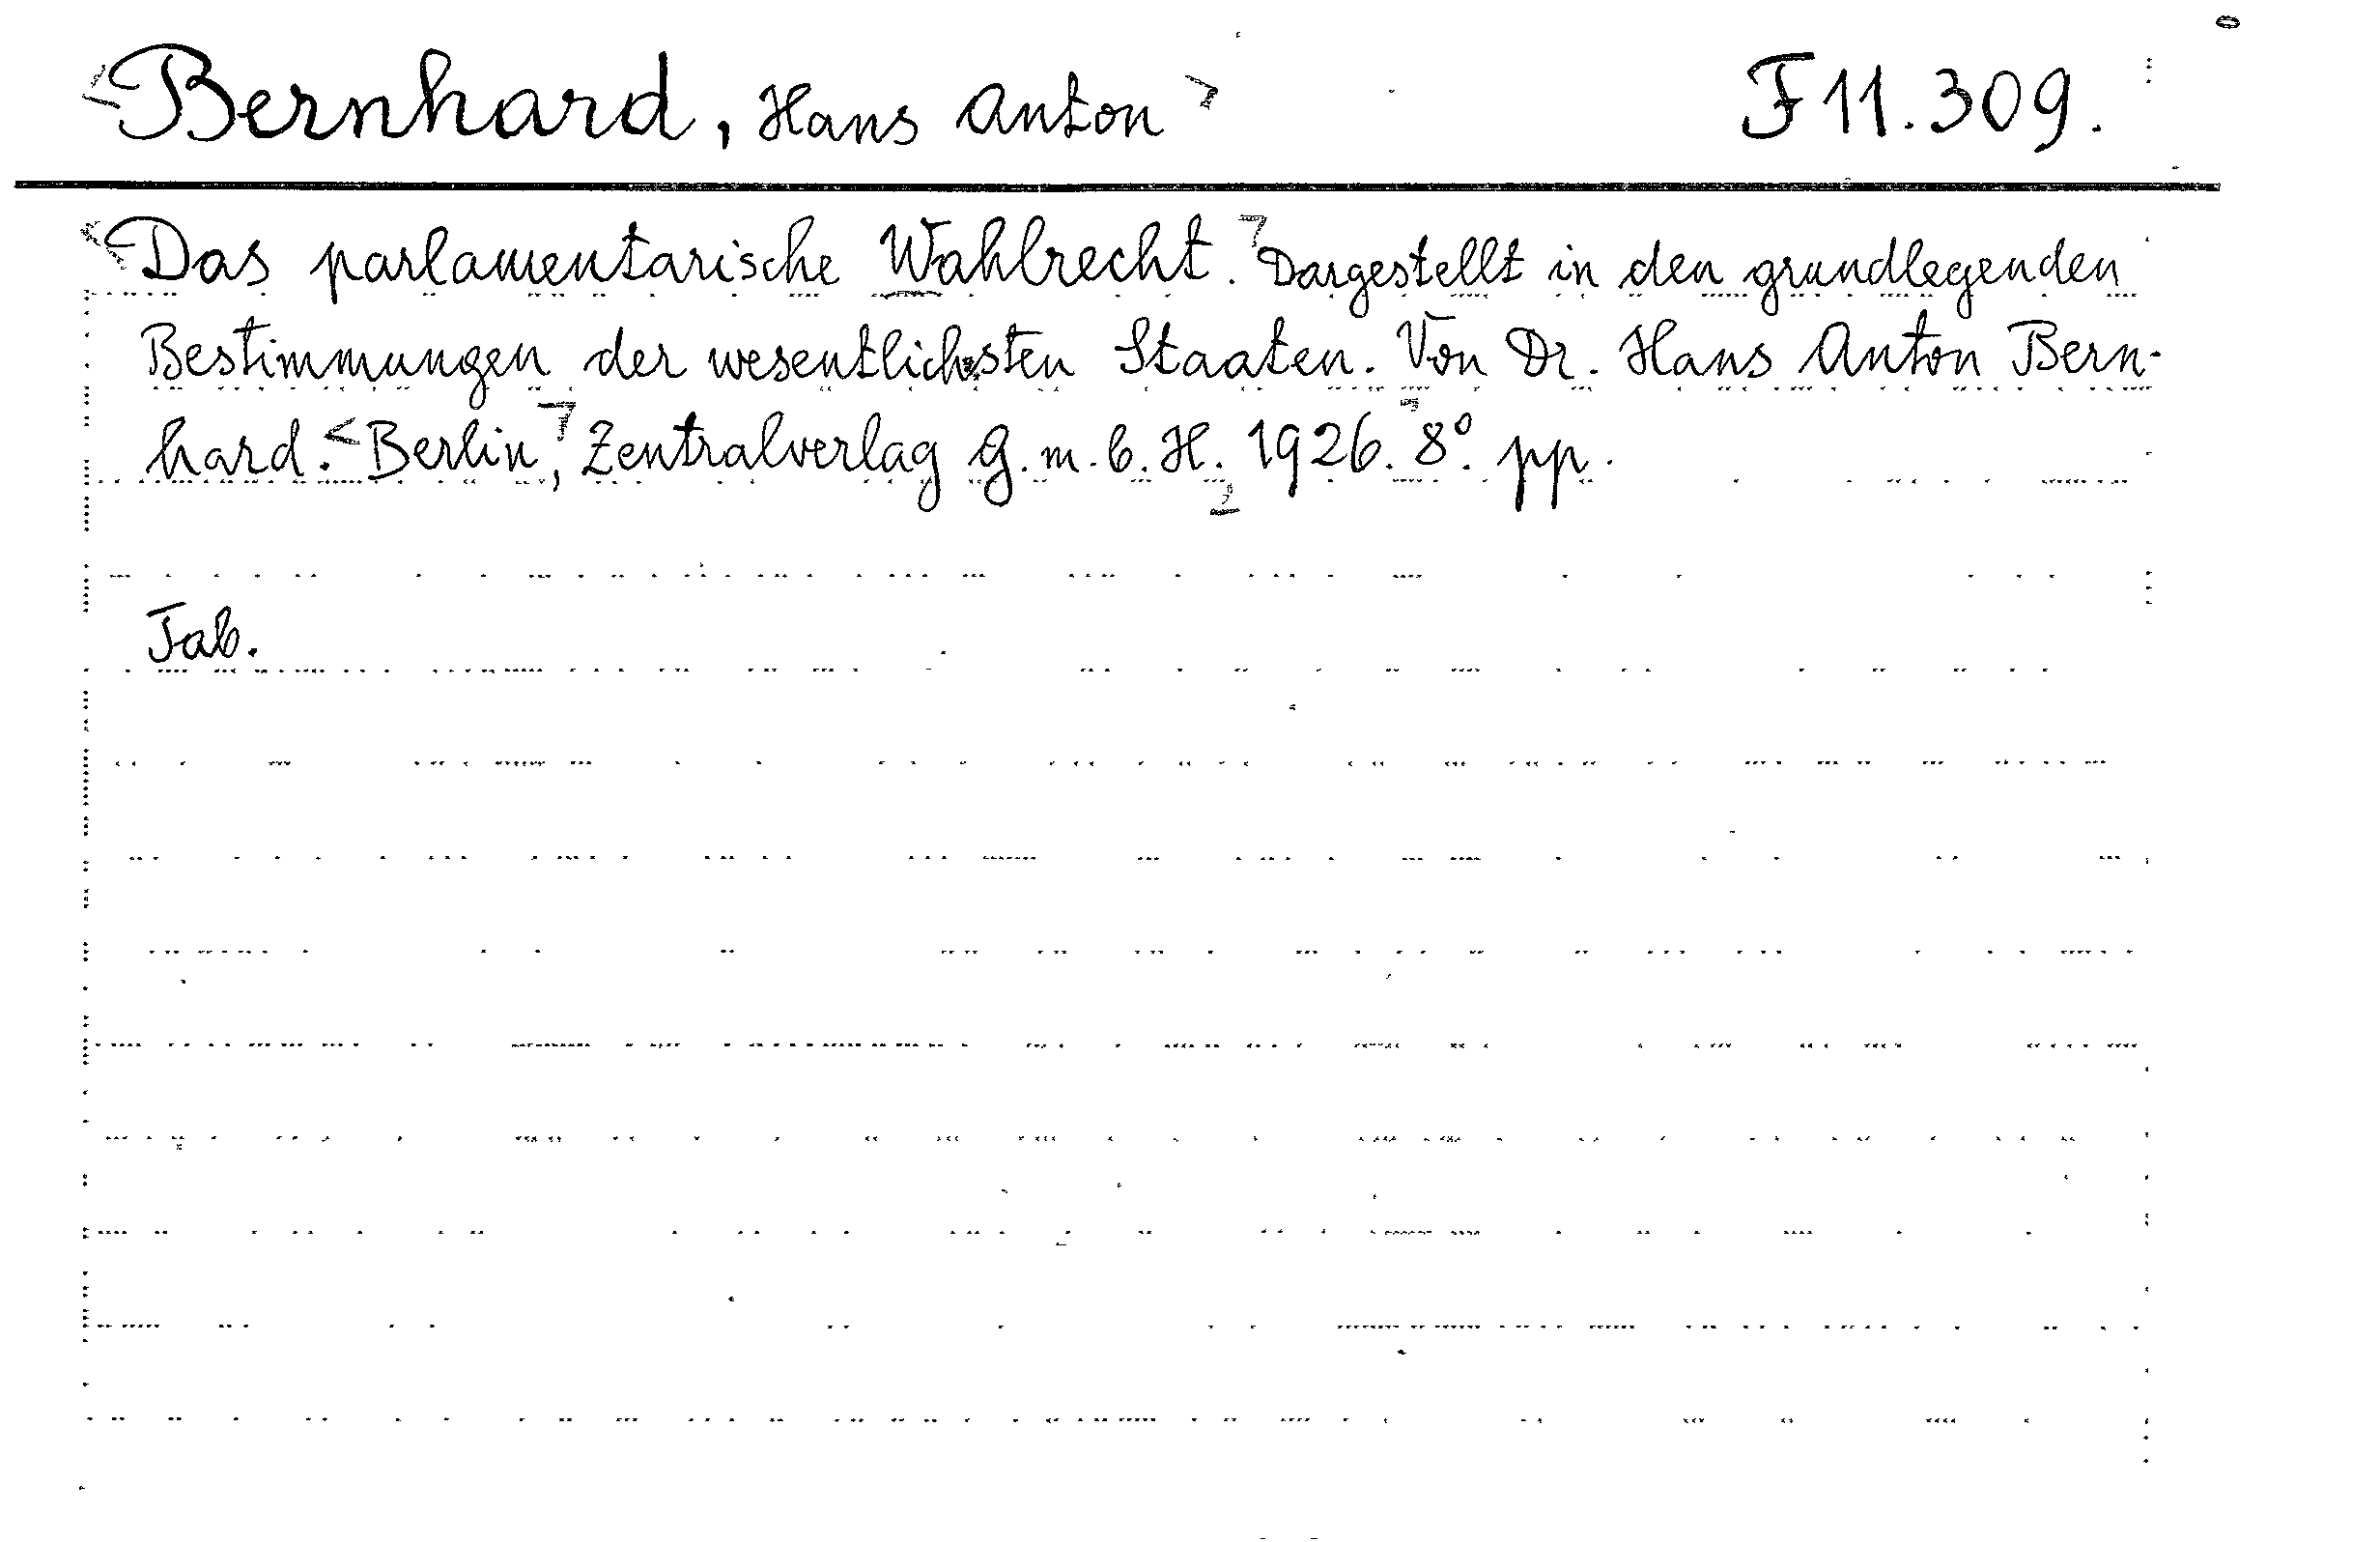 <Bernhard, Hans Anton> F 11.309.
<Das parlamentarische Wahlrecht.> Dargestellt in den grundlegenden
Bestimmungen der wesentlichsten Staaten. Von Dr. Hans Anton Bern-
hard. <Berlin>, Zentralverlag G. m. b. H., 1926. 8°. pp.
Tab.